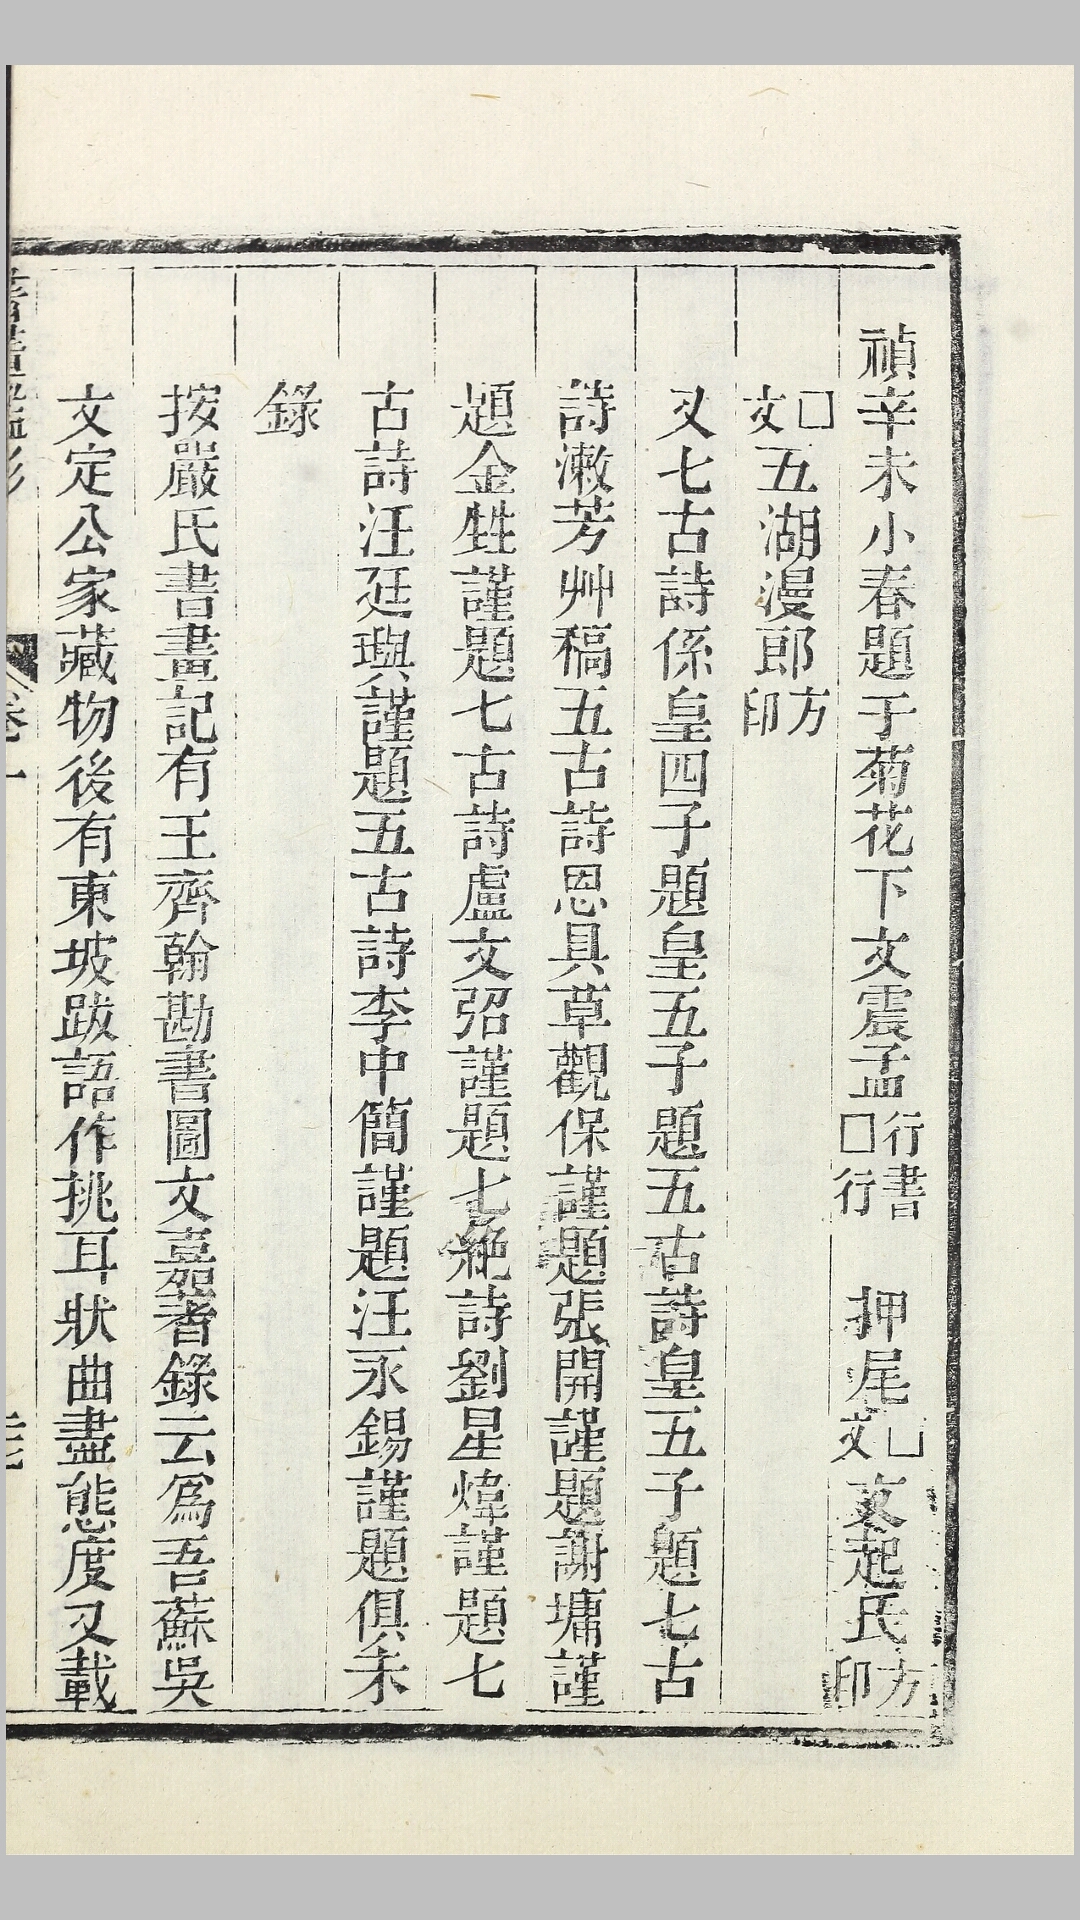 禎辛未小春題于菊花下文震孟行書□行押尾□文文起氏方印
□文五湖漫郎方印
又七古詩係皇四子題皇五子題五古詩皇五子題七古
詩漱芳艸稿五古詩恩具草觀保謹題張開謹題謝墉謹
題金甡謹題七古詩盧文弨謹題七絶詩劉星煒謹題七
古詩汪廷璵謹題五古詩李中簡謹題汪永錫謹題俱未
錄
按嚴氏書畫記有王齊翰勘書圖文嘉著錄云爲吾蘇吳
文定公家藏物後有東坡跋語作挑耳狀曲盡態度又載
卷一